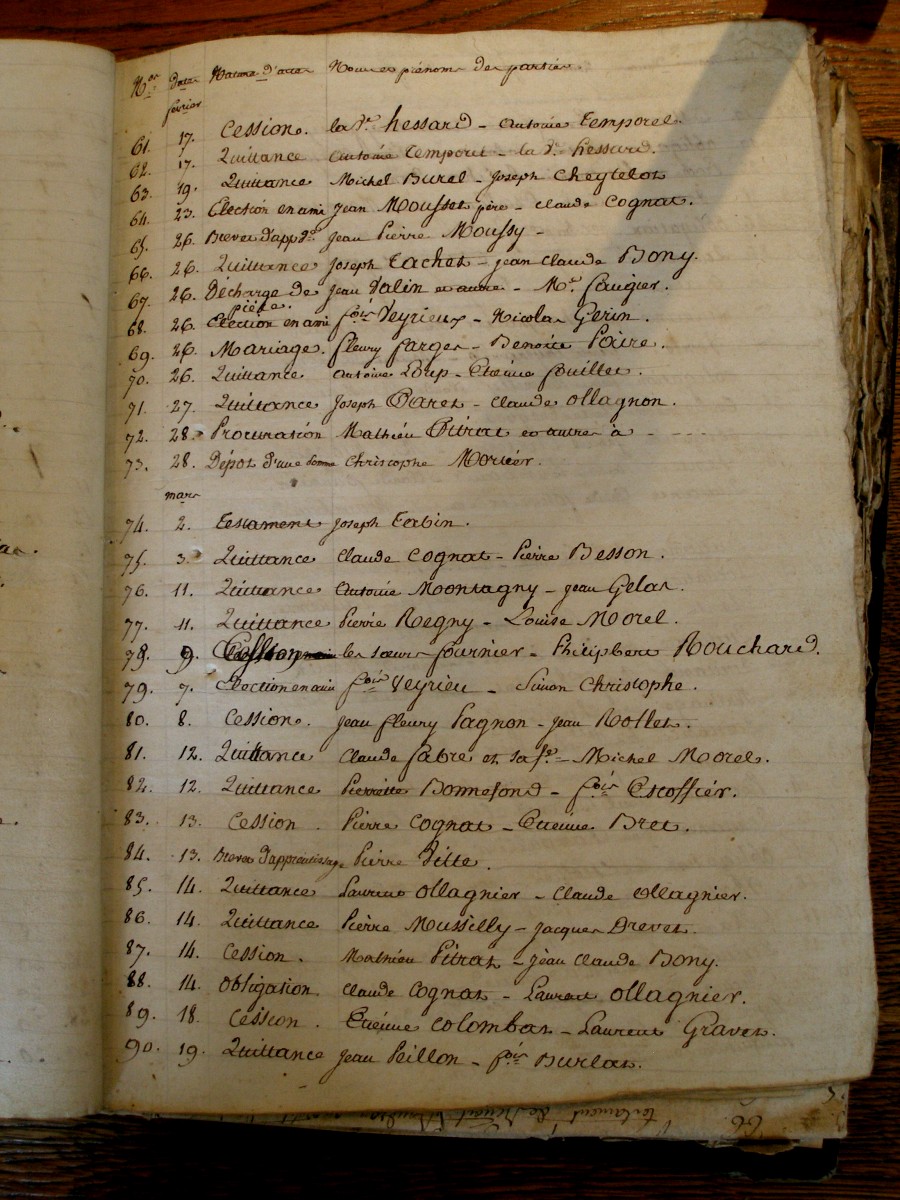 Nos Dates Nature d'actes Noms et prénoms des parties.
février
61. 17. Cession. la ve hessard - Antoine Temporel.
62. 17. Quittance Antoine Temporel - la ve hessard.
63. 19. Quittance Michel Burel - Joseph Cheytelot
64. 23. Élection en ami Jean Mousset père - Claude Cognat.
65. 26. Brevet d'app.ge Jean Pierre Moussy -
66. 26. Quittance Joseph Tachet - Jean Claude Bony.
67. 26. Décharge de Jean Valin et autre - Mr. faugier.
pièce.
68. 26. Élection en ami fçois Veyrieux - Nicolas Gerin.
69. 26. Mariage. fleury farges - Benoite Poire.
70. 26. Quittance Antoine Loup - Etienne fouillet.
71. 27. Quittance Joseph Paret - Claude Ollagnon.
72. 28. Procuration Mathieu Pitrat et autres à -
73. 28. Dépot d'une somme Christophe Mortier.
mars
74. 2. testament Joseph Terbin.
75. 3. Quittance Claude Cognat - Pierre Besson.
76. 11. Quittance Antoine Moontagny - Jean Gelas.
77. 11. Quittance Pierre Regny - Louise Morel.
78. 9. Cession les sœurs fournier - Philipbert Bouchard.
79. 7. Élection en ami fçois Veyrieu - Simon Christophe.
80. 8. Cession. Jean fleury Pagnon - Jean Rollet.
81. 12. Quittance Claude fabre et sa fe - Michel Morel.
82. 12. Quittance Pierrette Bonnefond - fçois Escoffier.
83. 13. Cession. Pierre Cognat - Etienne Bret.
84. 13. Brevet d'apprentissage Pierre Bitte.
85. 14. Quittance Laurent Ollagnier - Claude Ollagnier.
86. 14. Quittance Pierre Mussilly - Jacques Drevet.
87. 14. Cession. Mathieu Pitrat - Jean Claude Bony.
88. 14. Obligation Claude Cognat - Laurent Ollagnier.
89. 18. Cession. Etienne Colombat - Laurent Gravet.
90. 19. Quittance Jean Peillon - fçois Burlat.